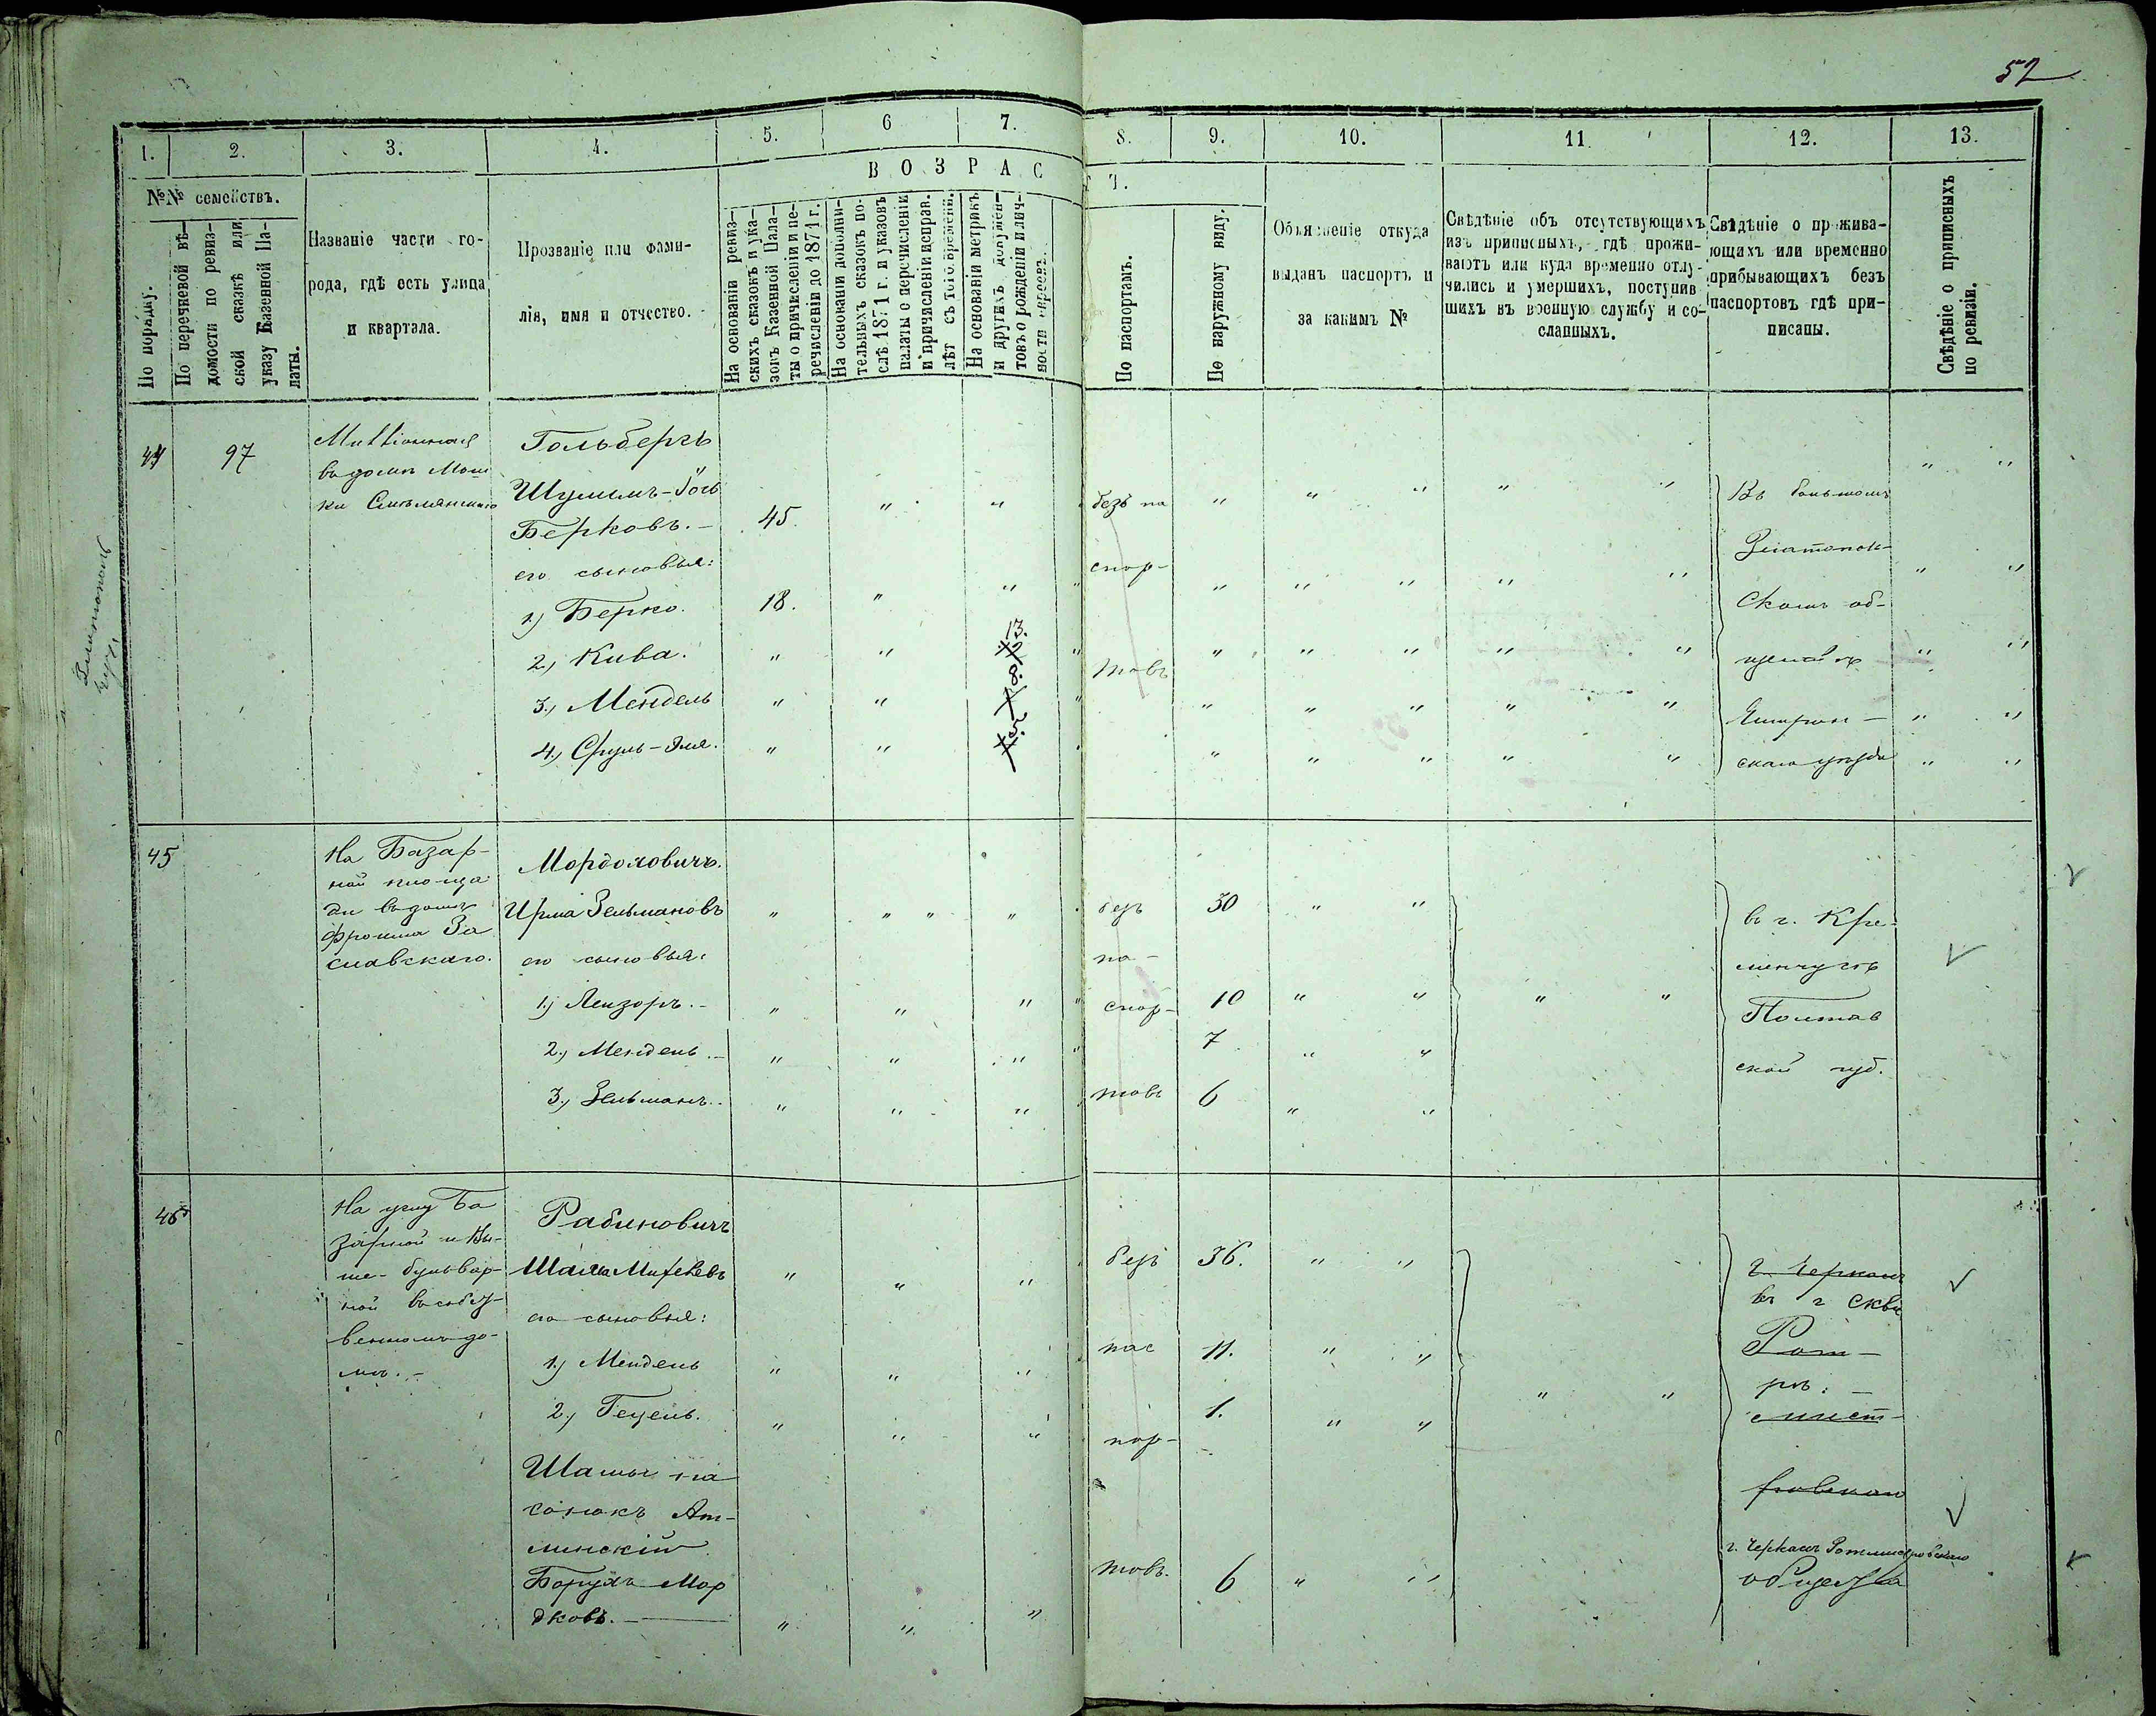 52
1.
2.
3.
4.
5.
6
7.
8.
9.
10.
11
12.
13.
ВОЗРАСТ.
№№ семействъ.
По порядку.
По перечневой вѣ-
домости по ревиз-
ской сказкѣ или
указу Казенной Па-
латы.
Названіе части го-
рода, гдѣ есть улица
и квартала.
Прозваніе или фами-
лія, имя и отчество.
На основаніи ревиз-
скихъ сказокъ и ука-
зовъ Казенной Пала-
ты о причисленіи и пе-
речисленіи до 1871 г.
На основаніи дополни-
тельныхъ сказокъ по-
слѣ 1871 г. и указовъ
палаты о перечисленіи
и причисленіи исправ.
лѣт съ того времени.
На основаніи метрикъ
и другихъ докумен-
товъ о рожденіи и лич-
ности евреевъ.
По паспортамъ.
По наружному виду.
Объясненіе откуда
выданъ паспортъ и
за какимъ №
Свѣдѣніе объ отсутствующихъ
изъ приписныхъ, гдѣ прожи-
ваютъ или куда временно отлу-
чились и умершихъ, поступив-
шихъ въ военную службу и со-
сланныхъ.
Свѣдѣніе о прожива-
ющихъ или временно
прибывающихъ безъ
паспортовъ гдѣ при-
писаны.
Свѣдѣніе о приписныхъ
по ревизіи.
44
97
въ домѣ Мош
ки Смѣлянскаго
Гольбергъ
Шулимъ-Іось
Берковъ.- 45.
его сыновья:
1) Берко. 18.
2) Кива. 13.
3.) Мендель 8.
4.) Сруль-Эля.
безъ па
спор-
товъ
Въ большомъ
Златополь-
скомъ об-
ществѣ
Чигрин-
скаго уѣзда
45
На Базар-
ной площа
ди въ домѣ
Фроима За
славскаго.
Мордоховичъ.
Ирма Зельмановъ
его сыновья:
1.) Лейзоръ.-
2.) Мендель.-
3.) Зельманъ.-
безъ
па-
спор-
товъ
30
10
7
6
въ г. Кре-
менчугѣ
Полтав
ской губ.
46
На углу Ба
зарной и Ни-
же-бульвар-
ной въ собст-
венномъ до-
мѣ.-
Рабиновичъ
его сыновья:
1.) Мендель
2.) Гецель.
Боруха Мор
дковъ.
безъ
пас
пор-
товъ.
36.
11.
1.
6
г. Черкасъ
въ г Сквирѣ
Рот-
мист-
ровскаго
г. Черкасъ Ротмистровскаго
общества